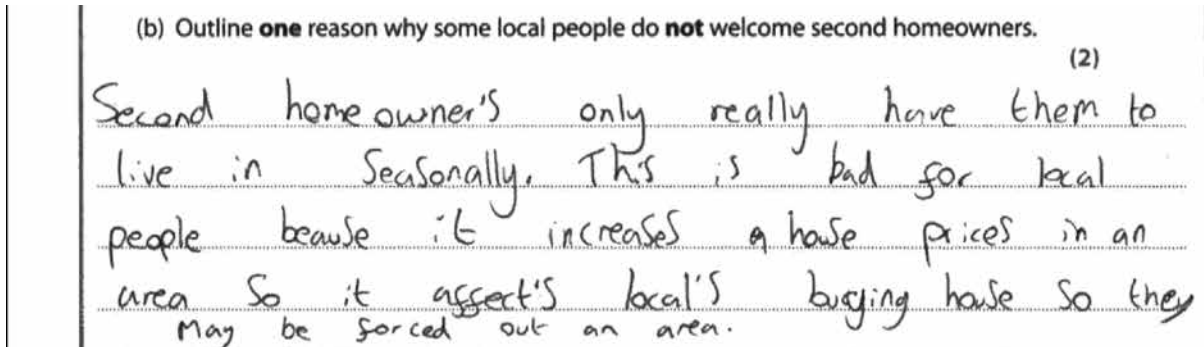 (b) Outline one reason why some local people do not welcome second homeowners.
(2)
Second home owner's only really have them to
live in Seasonally. This is bad for local
people beause it increases a house prices in an
area So it affect's local's buying house so they
may be forced out an area.